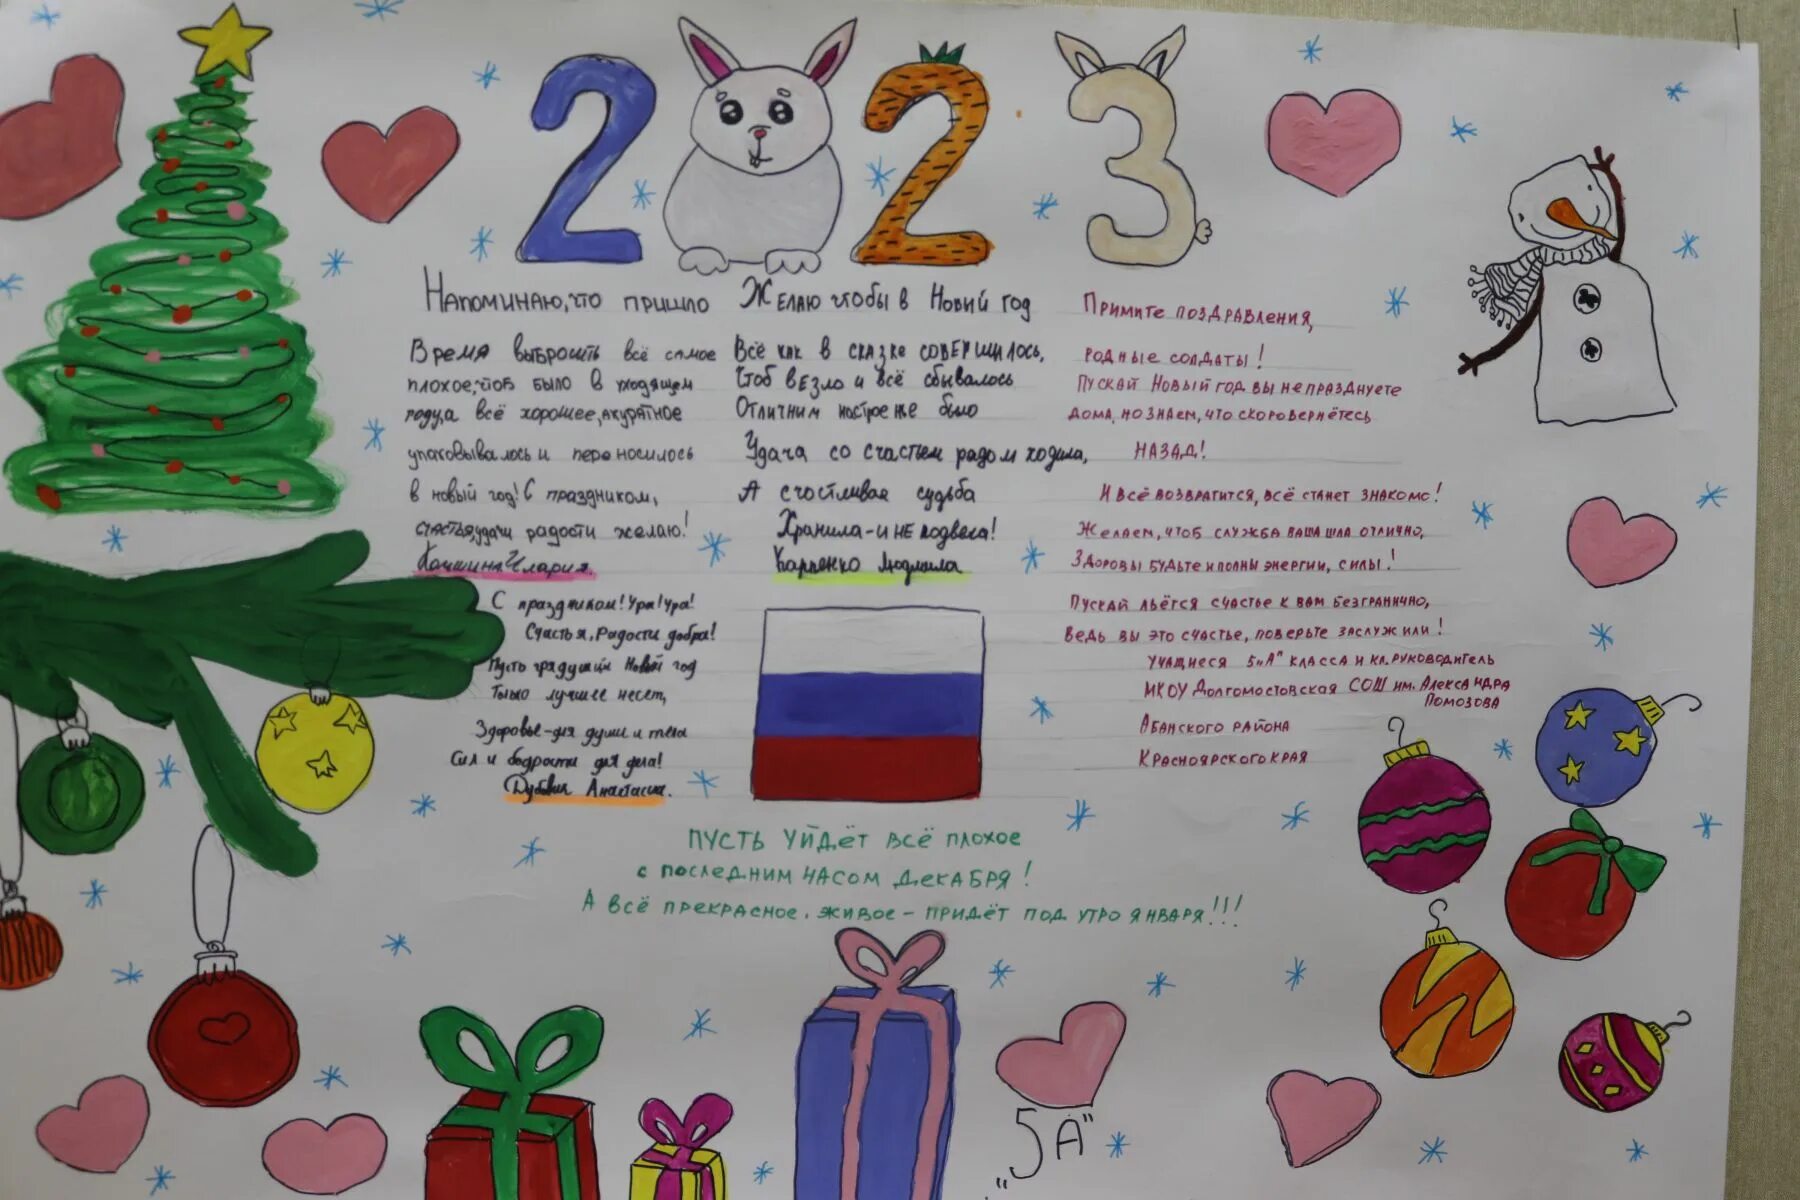 2 2 3
Напоминаю, что пришло
Время выбросить всё самое
плохое, что было в уходящем
году, а всё хорошее, акуратное
упаковывалось и переносилось
в новый год! С праздником,
счастья, удачи радости желаю!
Илария
Желаю чтобы в Новый год
Всё как в сказке совершилось,
Чтоб везло и всё сбывалось
Отличним было
Удача со счастьем рядом ходила,
А счостливая судьба
Хранила-и не подвела!
Карпенко Людмила
Примите поздравления,
родные солдаты!
Пускай Новый год вы не празднуете
дома, но знаем, что скоро вернётесь
назад!
И всё возвратится, всё станет знакомо!
Желаем, чтоб служба ваша шла отлично,
Здоровы будьте и полны энергии, силы!
Пускай льётся счастье к вам безгранично,
Ведь вы это счастье, поверьте заслужили!
учащиеся 5„А" класса и кл. руководитель
МКОУ Долгомостовская СОШ им. Александра
Помозова
Абанского района
Красноярского края
С праздником! Ура! Ура!
Счастья, Радости добра!
Пусть грядущий Новый год
Только лучшее несет,
Здоровье-для души и тела
Сил и бодрости для дела!
Анастасия.
Пусть уйдёт всё плохое
с последним часом декабря!
А всё прекрасное, живое - придёт под утро января!!!
„5А"